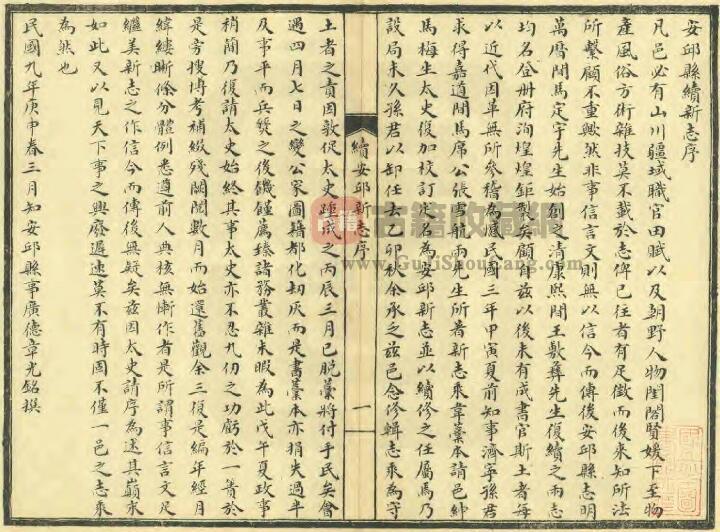 安邱縣續新志序
凡邑必有山川疆域職官田賦以及朝野人物閨閤賢媛下至物
產風俗方術雜技莫不載於志俾已往者有足徵而後來知所法
所繫顧不重歟然非事信言文則無以信今而傳後安邱縣志明
萬曆間馬定宇先生始創之清康熙間王敷彝先生復續之兩志
均名登册府洵煌煌鉅製矣顧自茲以後未有成書官斯土者每
以近代因革無所參稽為憾民國三年甲寅夏前知事濟寧孫君
求得嘉道間馬席公張雪航兩先生所著新志乘韋藁本請邑紳
馬梅生太史復加校訂定名為安邱新志並以續修之任屬馬乃
設局未久孫君以卸任去乙卯秋余承乏茲邑念修輯志乘為守
續安邱新志序
一
土者之責因敦促太史踵成之丙辰三月已脫藁將付手民矣會
遇四月七日之變公家圖籍都化刧灰而是書藁本亦損失過半
及事平而兵燹之後饑饉薦臻諸務叢雜未暇為此戊午夏政事
稍簡乃復請太史始終其事太史亦不忍九仞之功虧於一簣於
是旁搜博考補綴殘闕閱數月而始還舊觀余三復是編年經月
緯縷晰條分體例悉遵前人典核無慚作者是所謂事信言文足
繼美新志之作信今而傳後無疑矣茲因太史請序為述其巔末
如此又以見天下事之興廢遲速莫不有時固不僅一邑之志乘
為然也
民國九年庚申春三月知安邱縣事廣德章光銘撰
古籍收藏网
www.GuJiShouCang.com